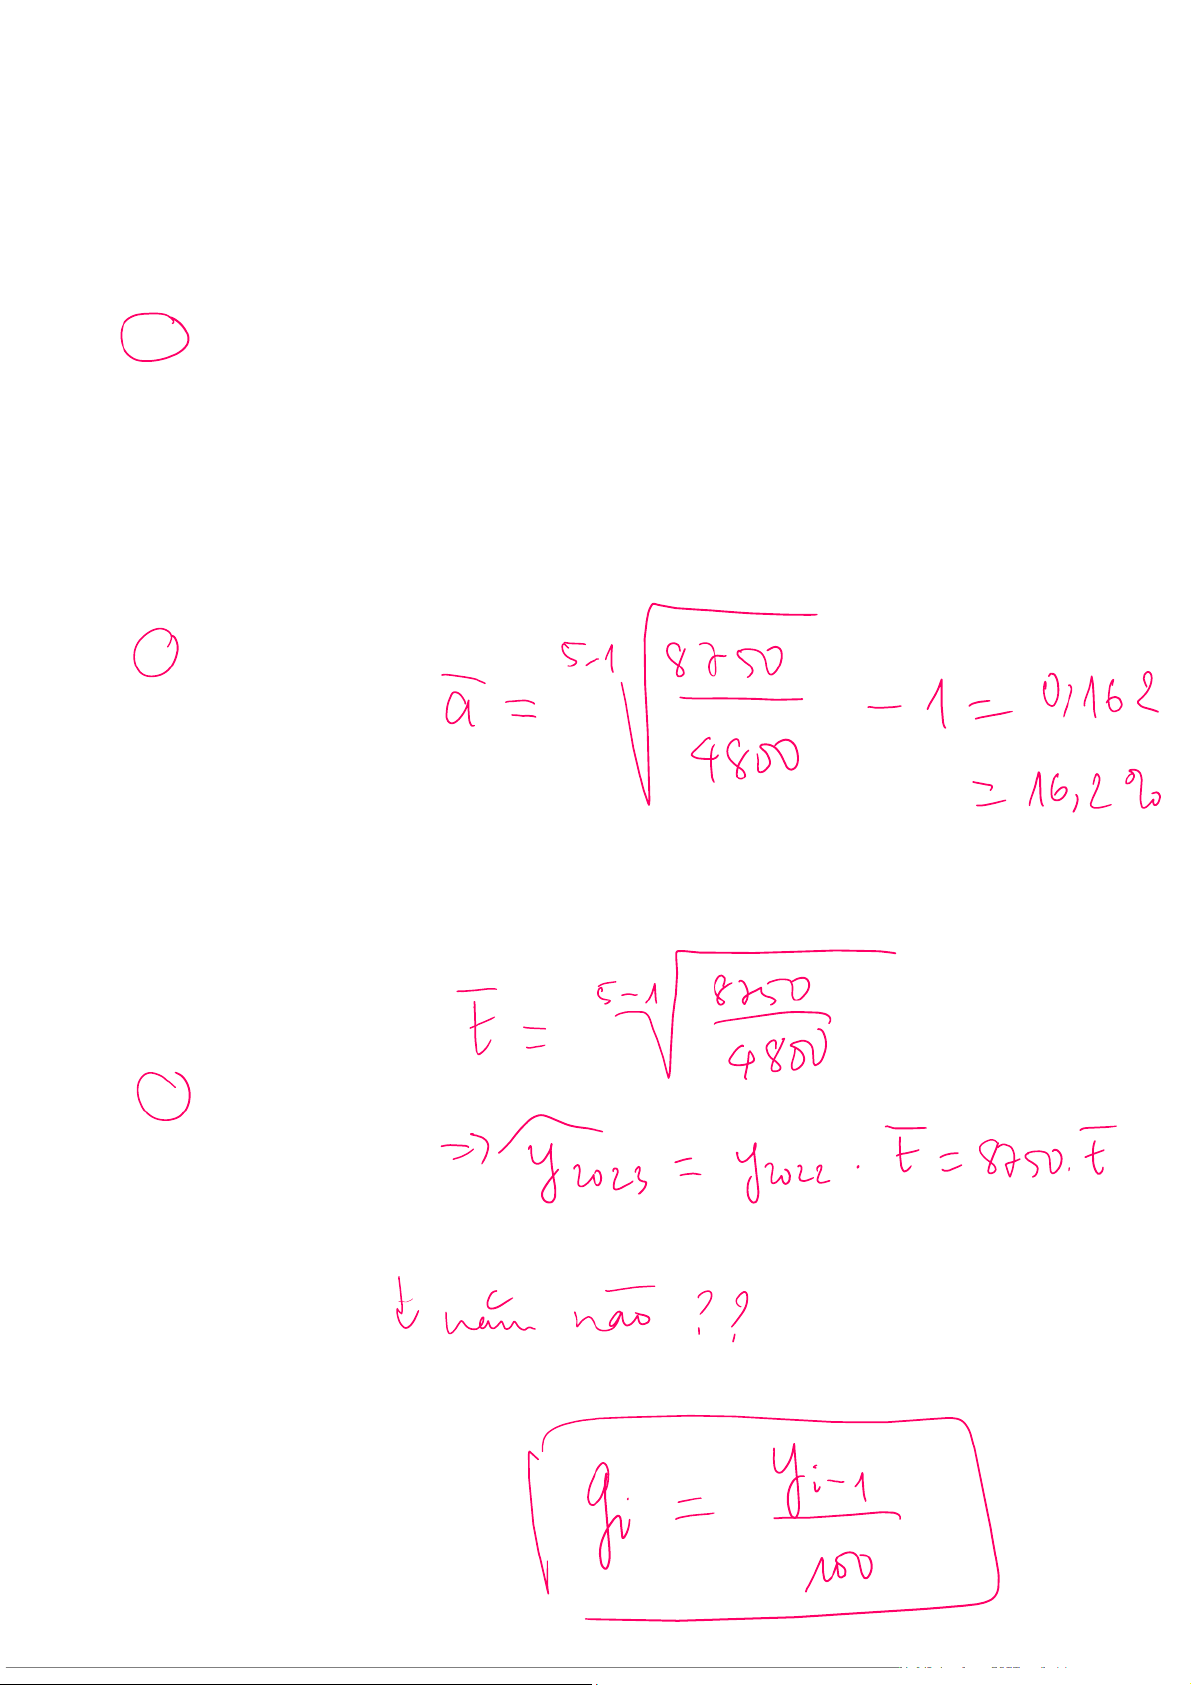 a̅ = ⁵⁻¹√(8750/4800) - 1 = 0,162
= 16,2%
t̅ = ⁵⁻¹√(8750/4800)
=> ŷ₂₀₂₃ = y₂₀₂₂ . t̅ = 8750. t̅
t năm nào ??
gᵢ = yᵢ₋₁/100